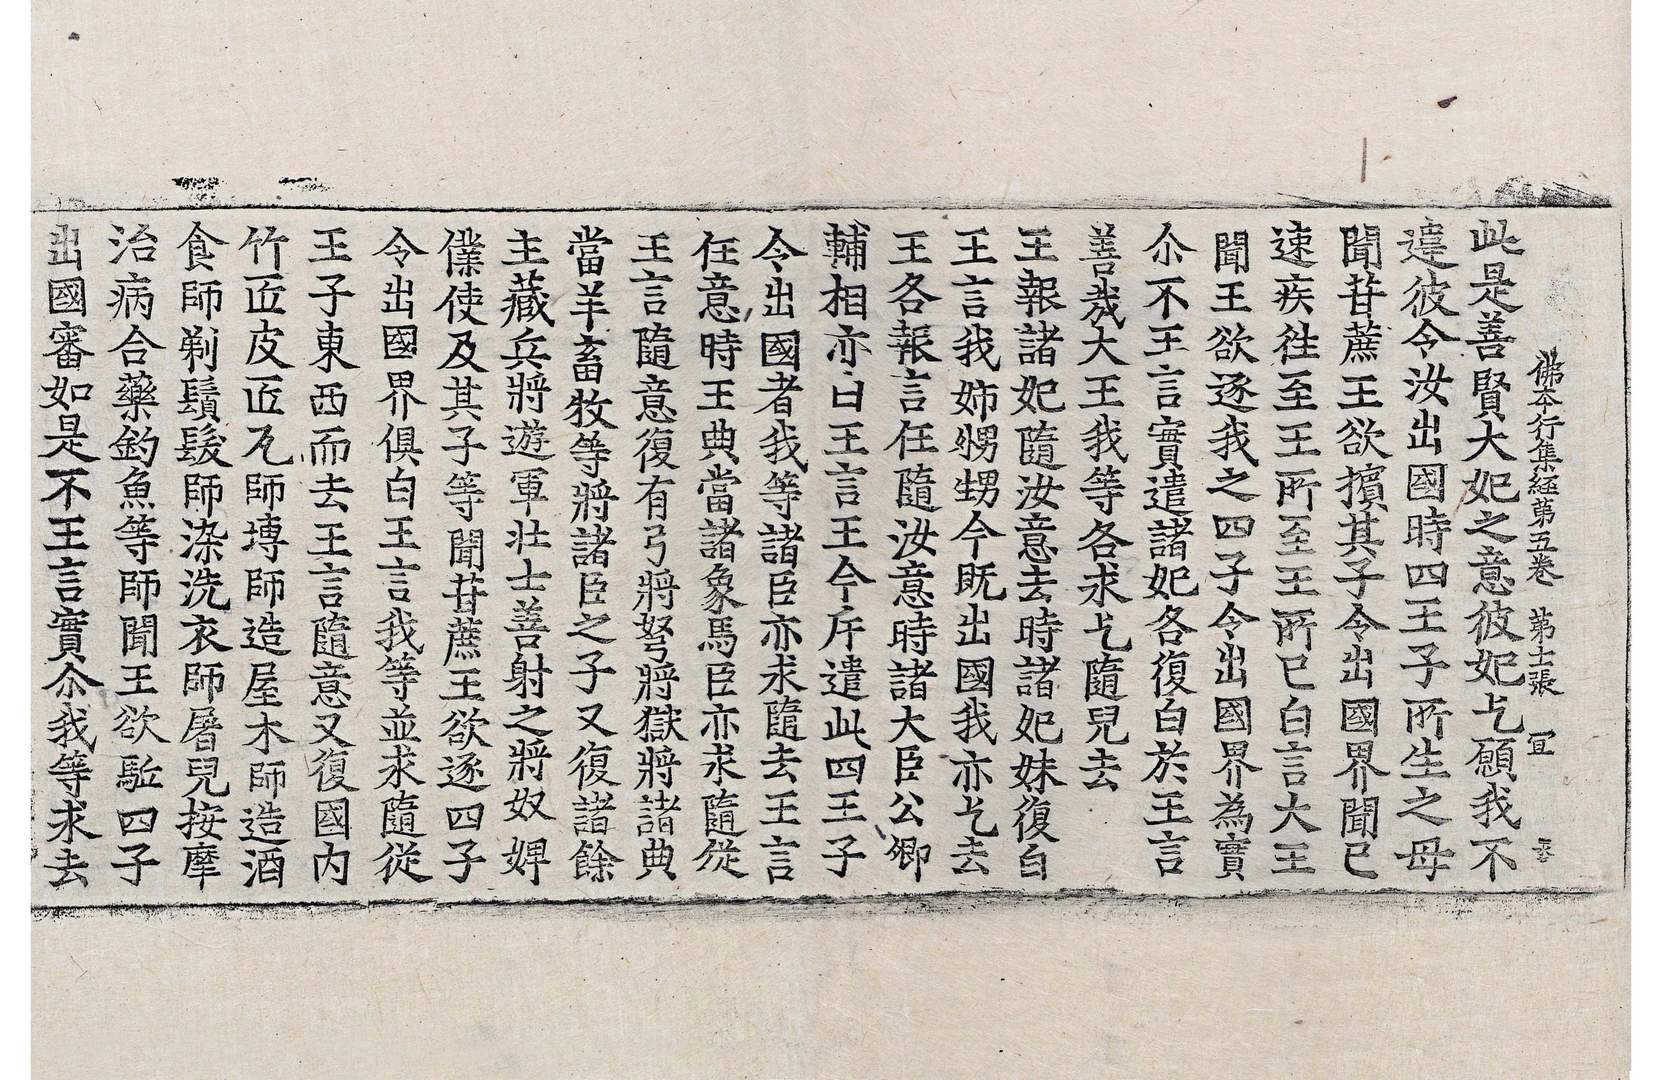 佛本行集経第五卷　第十二張　冝
此是善賢大妃之意彼妃乞願我不
違彼令汝出國時四王子所生之母
聞苷蔗王欲擯其子令出國界聞已
速疾往至王所至王所已白言大王
聞王欲逐我之四子令出國界為實
尒不王言實遣諸妃各復白於王言
善㢤大王我等各求乞隨兒去
王報諸妃隨汝意去時諸妃妹復白
王言我姊甥甥今既出國我亦乞去
王各報言任隨汝意時諸大臣公卿
輔相亦白王言王今斥遣此四王子
令出國者我等諸臣亦求隨去王言
任意時王典當諸象馬臣亦求隨從
王言隨意復有弓將弩將獄將諸典
當羊畜牧等將諸臣之子又復諸餘
主藏兵將遊軍壯士善射之將奴婢
僕使及其子等聞苷蔗王欲逐四子
令出國界俱白王言我等並求隨從
王子東西而去王言隨意又復國內
竹匠皮匠瓦師塼師造屋木師造酒
食師剃鬚髮師染洗衣師屠兒按摩
治病合藥釣魚等師聞王欲駈四子
出國審如是不王言實尒我等求去